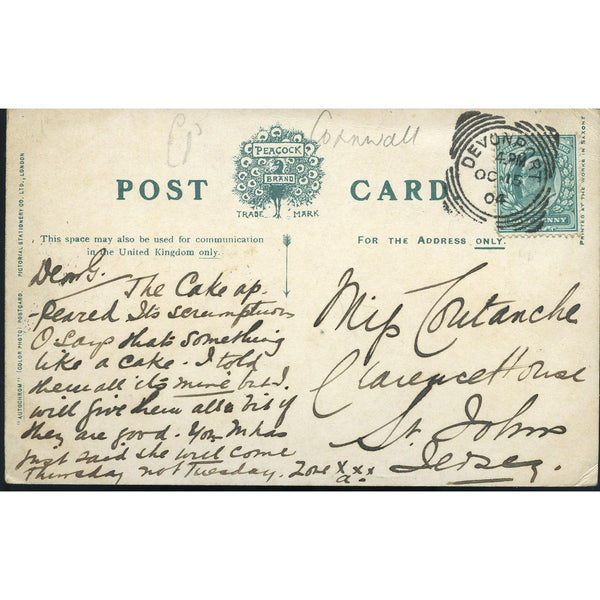 Cornwall
PEACOCK
BRAND
TRADE MARK
POST CARD
DEVONPORT
4.PM
OC 15
04
This space may also be used for communication
in the United Kingdom only.
FOR THE ADDRESS ONLY.
"AUTOCHROM" (COLOR PHOTO) POSTCARD. PICTORIAL STATIONERY CO. LTD., LONDON
PRINTED AT THE WORKS IN SAXONY
Dear G.
The Cake ap-
-peared Its scrumptious
O says that's something
like a cake. I told
them all its mine but I
will give them all a bit if
they are good. You Mha's
just said she will come
Thursday not Tuesday.
Miss Coutanche
Clarence House
St. Johns
Jersey.